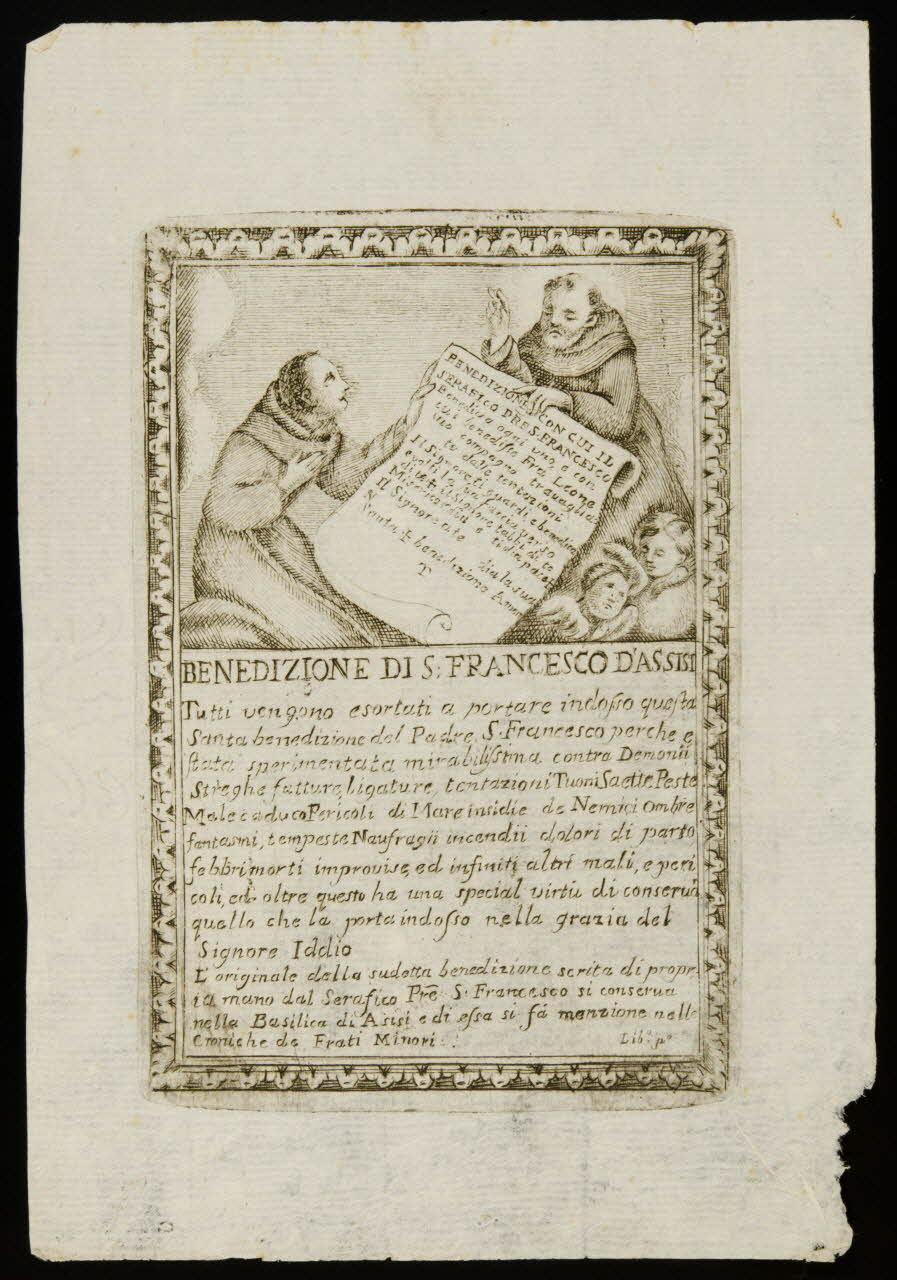 BENEDIZIONE CON CUI IL
SERAFICO P̃RE S. FRANCESCO
Benedisse ogni uno, e con
cui benedisse Fra Leone
suo compagno travaglia
to dalle tentazioni
Il Signore ti guardi e benedica
volti la sua faccia verso
di te il Signore abbi di te
Misericordia e ti dia pace
Il Signore ate dia la sua
Santa ✝ benedizione Amen
T
BENEDIZIONE DI S: FRANCESCO D'ASSISI
Tutti vengono esortati a portare indoſso queſta
Santa benedizione del Padre S. Francesco perche e
ſtata sperimentata mirabiliſsima contra Demonii
Streghe fatture, ligature, tentazioni Tuoni Saette Peste
Male caduco Pericoli di Mare insidie de Nemici ombre
fantasmi, tempeste Naufragii incendii dolori di parto
febbri morti improvise, ed infiniti altri mali, e peri
coli, ed oltre questo ha una special virtù di conserva
quello che la porta indoſso nella grazia del
Signore Iddio
L'originale della sudetta benedizione scrita di propr
ia mano dal Serafico P̃re S. Francesco si conserva
nella Basilica di Asisi e di eſsa si fá menzione nelle
Croniche de Frati Minori : Lib: p.º